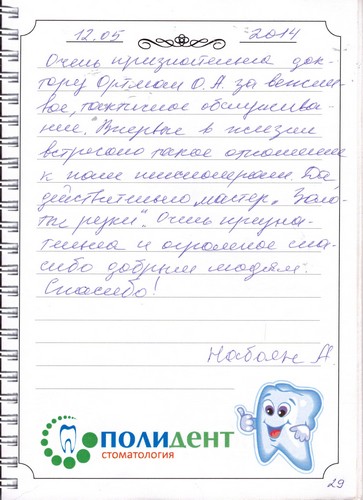 12.05 2014
Очень признательна док-
тору Ортман О.А. за вежли-
вое, тактичное обслужива-
ние. Впервые в жизни
встречаю такое отношение
к нам пенсионерам. Да,
действительно, мастер „Золо-
тые руки". Очень призна-
тельна и огромное спа-
сибо добрым людям.
Спасибо!
Набоян А.
ПОЛИДЕНТ
СТОМАТОЛОГИЯ
29